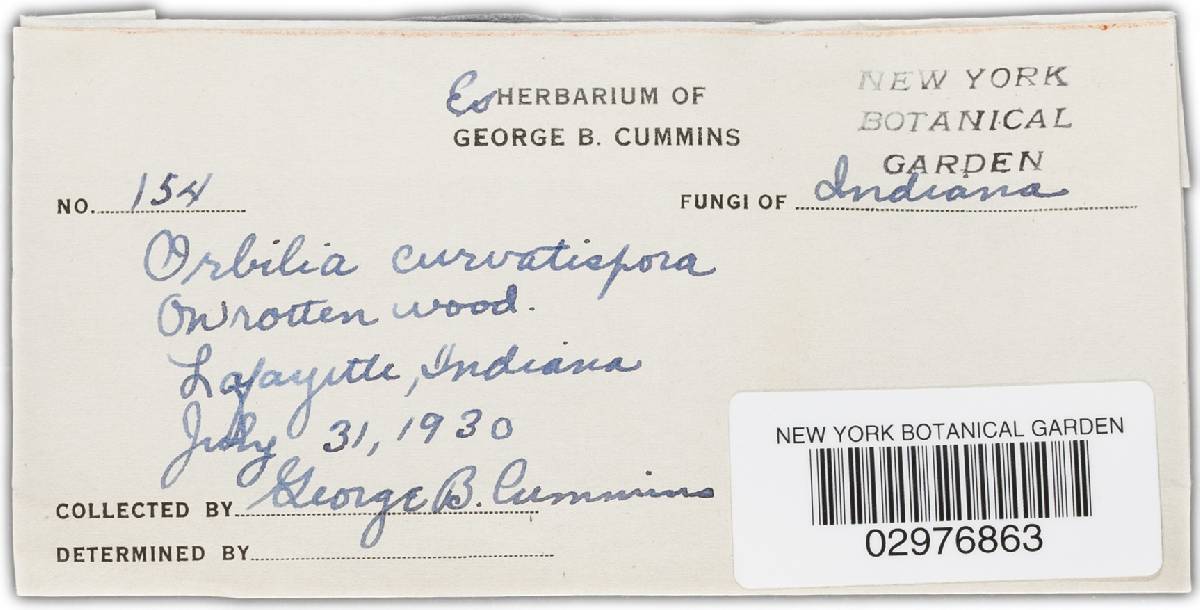 Ex HERBARIUM OF
GEORGE B. CUMMINS
NEW YORK
BOTANICAL
GARDEN
NO. 154
FUNGI OF Indiana
Orbilia curvatispora
On rotten wood.
Lafayette, Indiana
July 31, 1930
COLLECTED BY George B. Cummins
DETERMINED BY
NEW YORK BOTANICAL GARDEN
02976863